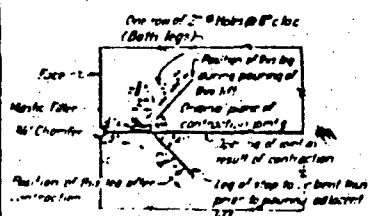 One row of 2" ø Holes @ 8" c to c
(Both legs)
Position of this leg
during pouring of
this lift
Face
Mastic Filler
Original plane of
contraction joint
Chamfer
result of contraction
Position of this leg after
contraction
Leg of stop to be bent thus
prior to pouring adjacent